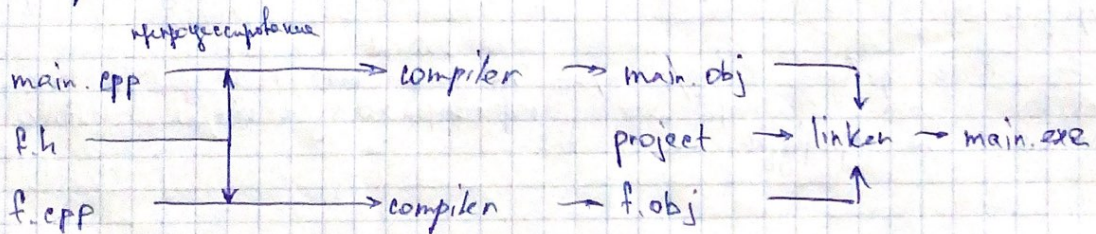 препроцессирование
main.cpp → compiler → main.obj
f.h project → linker → main.exe
f.cpp → compiler → f.obj